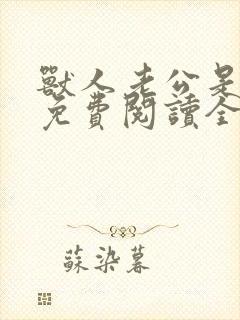 獸人老公是
免費閱讀全
蘇染暮